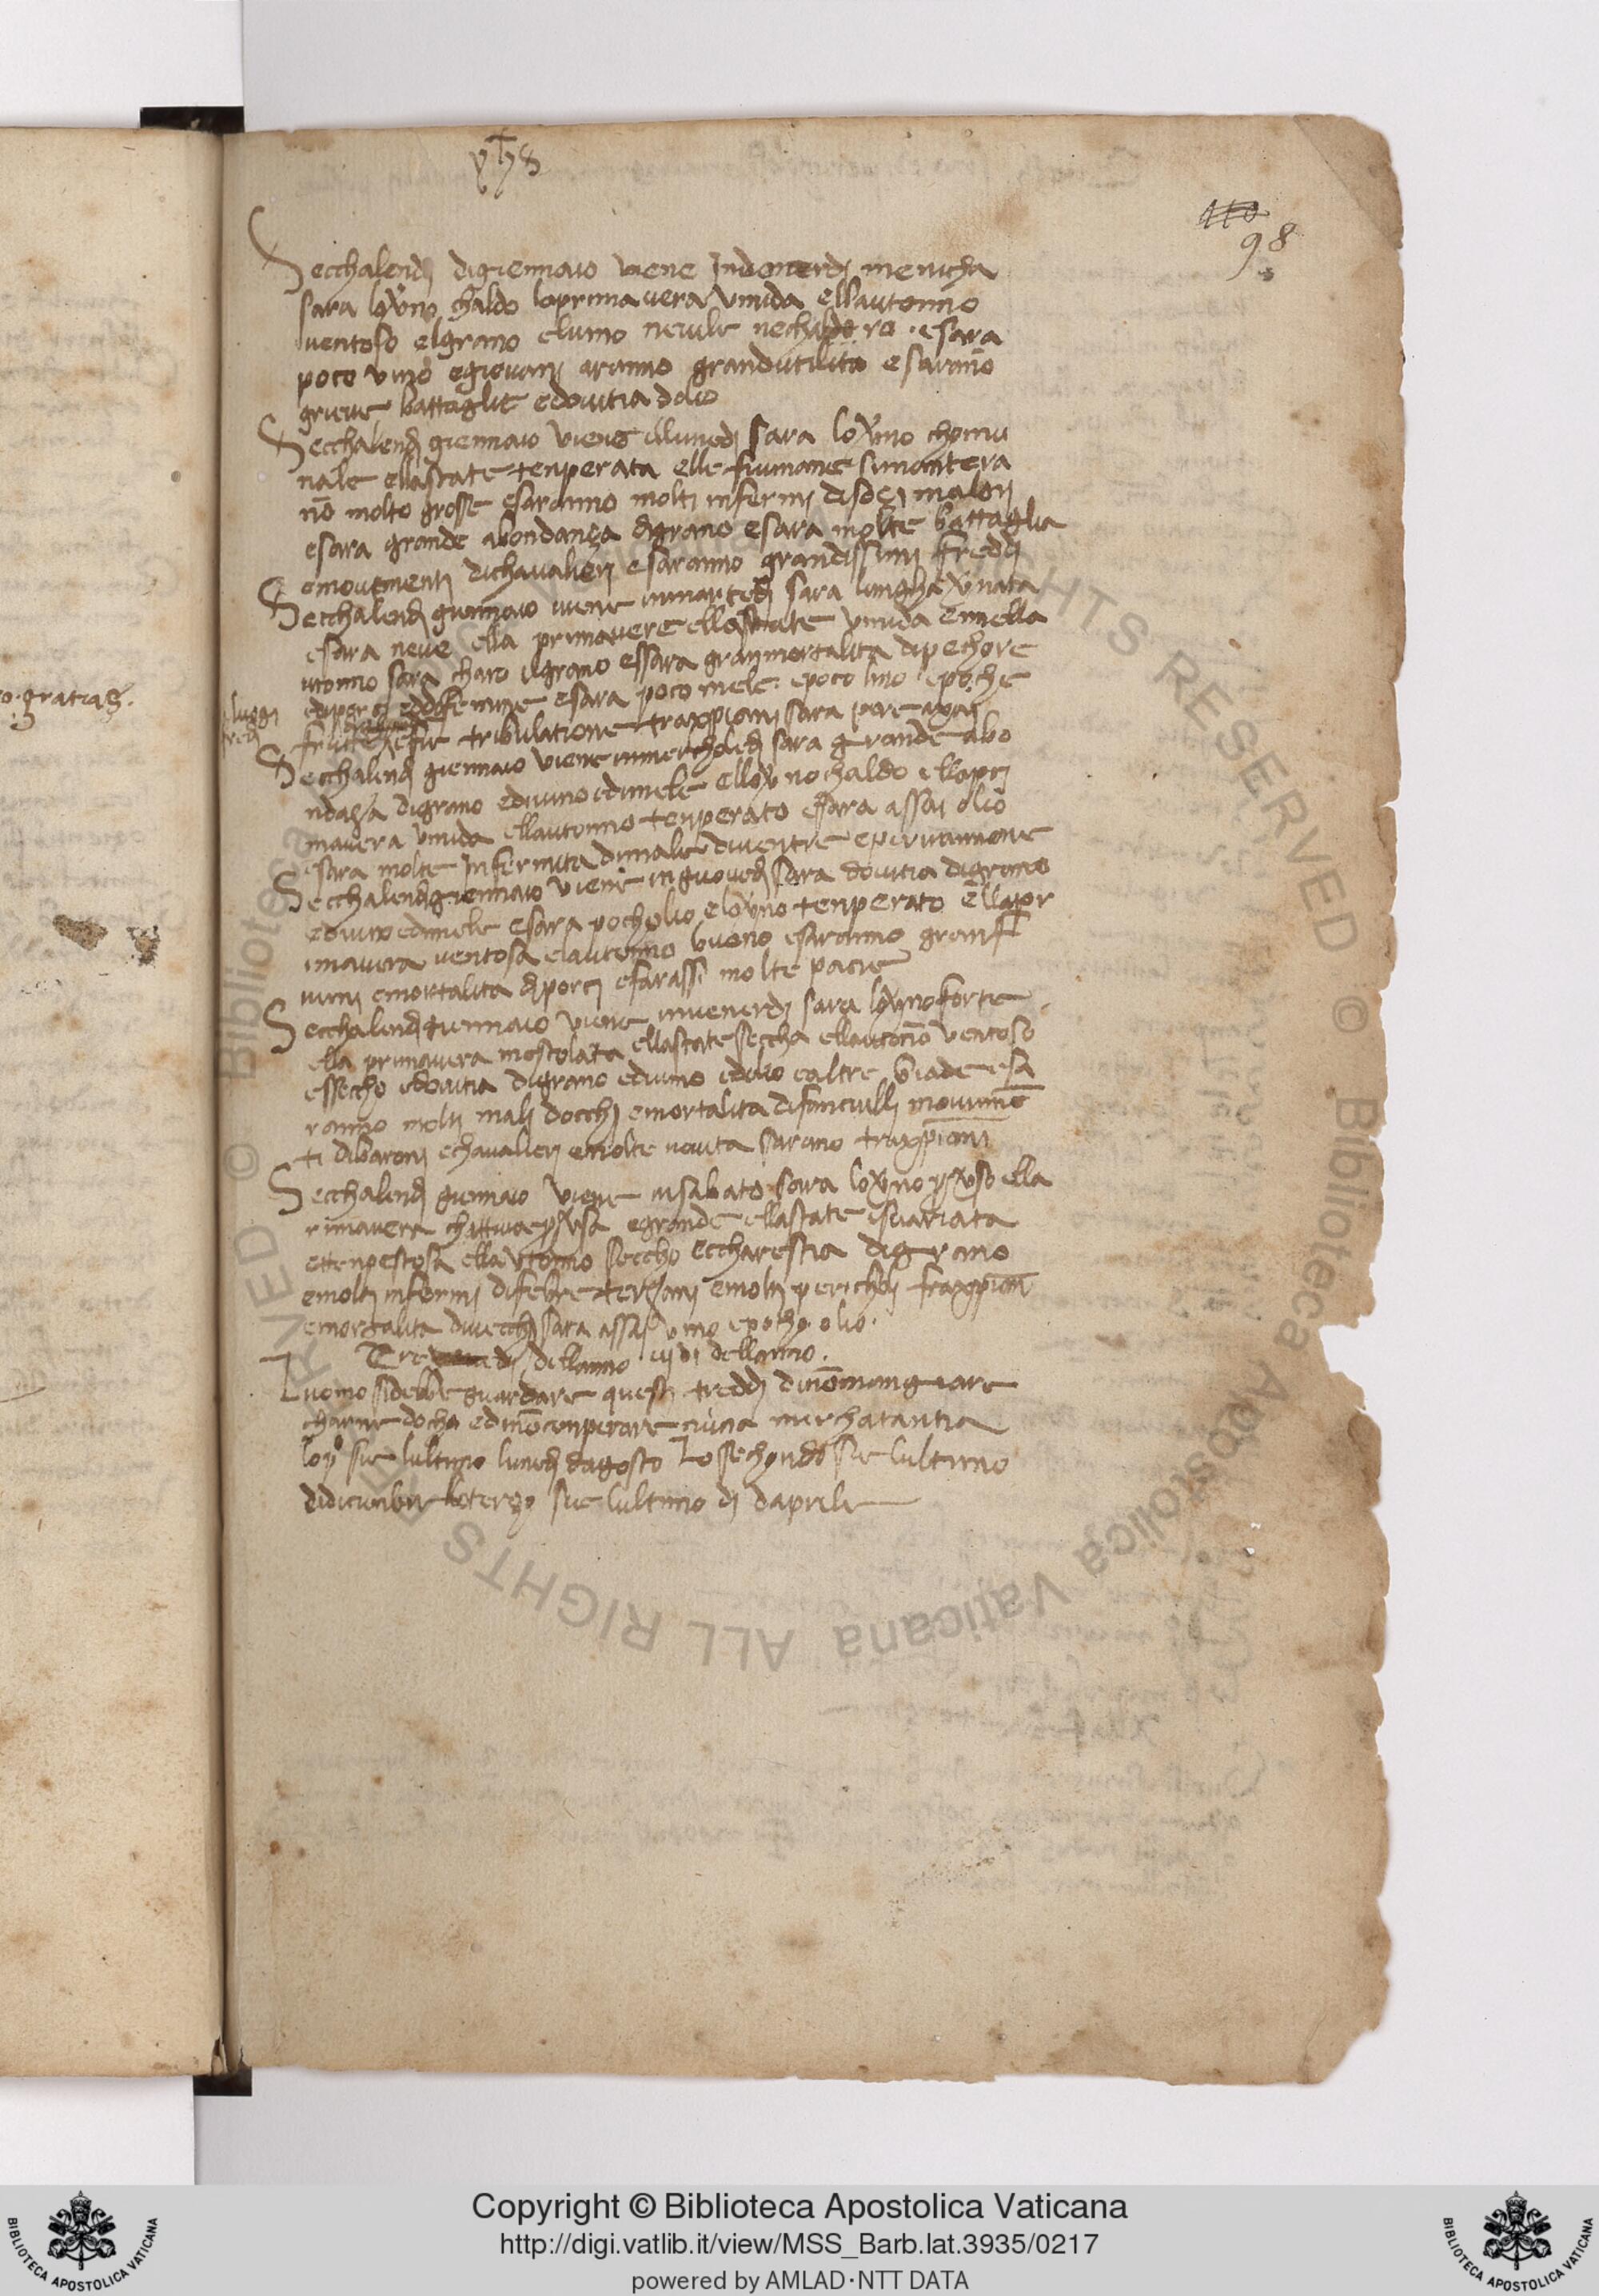 yhs
98
Secchalendj digiennaio viene Indomenedj menicha
sara loverno chaldo laprimavera vmida ellautonno
ventoso elgrano elumo nevile ne . esara
poco vino egiovanj aranno grandutilita esaranno
grieve battaglie edovitia dolio
Secchalendj giennaio viene illunedj sara loverno chomu
nale ellastate tenperata elle fiumane simantera
no molto grosse esaranno moltj infermj disoçj malorj
esara grande abondança digrano esara molte battaglia
emovementj dichavalierj esaranno grandissimj freddj
Secchalendj giennaio viene inmartedj sara lungha vernata
esara neve ella primavere ellastate vmida Ennella
vtonno sara charo ilgrano essara granmortalita dipechore
ediporcj eddifemine esara poco mele. epoco lino epoche
frutte efie tribulatione traxpianj sara pore
Secchalendj giennaio viene inmercholedj sara grande abo
ndança digrano edivino edimele elloverno chaldo ellaprj
mavera vmida ellautonno tenperato essara assai olio
esara molte Infermita dimale diventre eperutannone
Secchalendj giennaio viene in giovedj sara dovitia digrano
edivino edimele esara pocholio eloverno tenperato Ellapr
imavera ventosa elautonno buono esaranno gran f
iumj emortalita diporcj efarassi molte pacie
Secchalendj giennaio viene invenerdj sara loverno forte
ella primavera mescolata ellastate seccha ellautonno ventoso
essecho edovitia digrano edivino edolio ealtre biade esa
ranno moltj malj docchj emortalita difanciullj movimen
ti dibaronj echavalierj emolte novita sarano traxpianj
Secchalendj giennaio viene insabato sara loverno ella
rimavera chattiva egrande ellastate isvariata
ettenpestosa ellavtonno seccho eccharestia digrano
emoltj infermj difebre terçanj emoltj pericholj fraxpianj
emortalita divecchj sara assaj vino epocho olio.
Tre dellanno iij di dellanno.
Luomo sidebbe guardare questj tre dj dinomangiare
charne docha edinoconperare niuna merchatantia
lopo sie lultimo lunedj dagosto Lossechondo sie lultimo
didiciembre loterço sie lultimo dj daprile
o. gratias.
Copyright © Biblioteca Apostolica Vaticana
http://digi.vatlib.it/view/MSS_Barb.lat.3935/0217
powered by AMLAD·NTT DATA
BIBLIOTECA APOSTOLICA VATICANA
BIBLIOTECA APOSTOLICA VATICANA